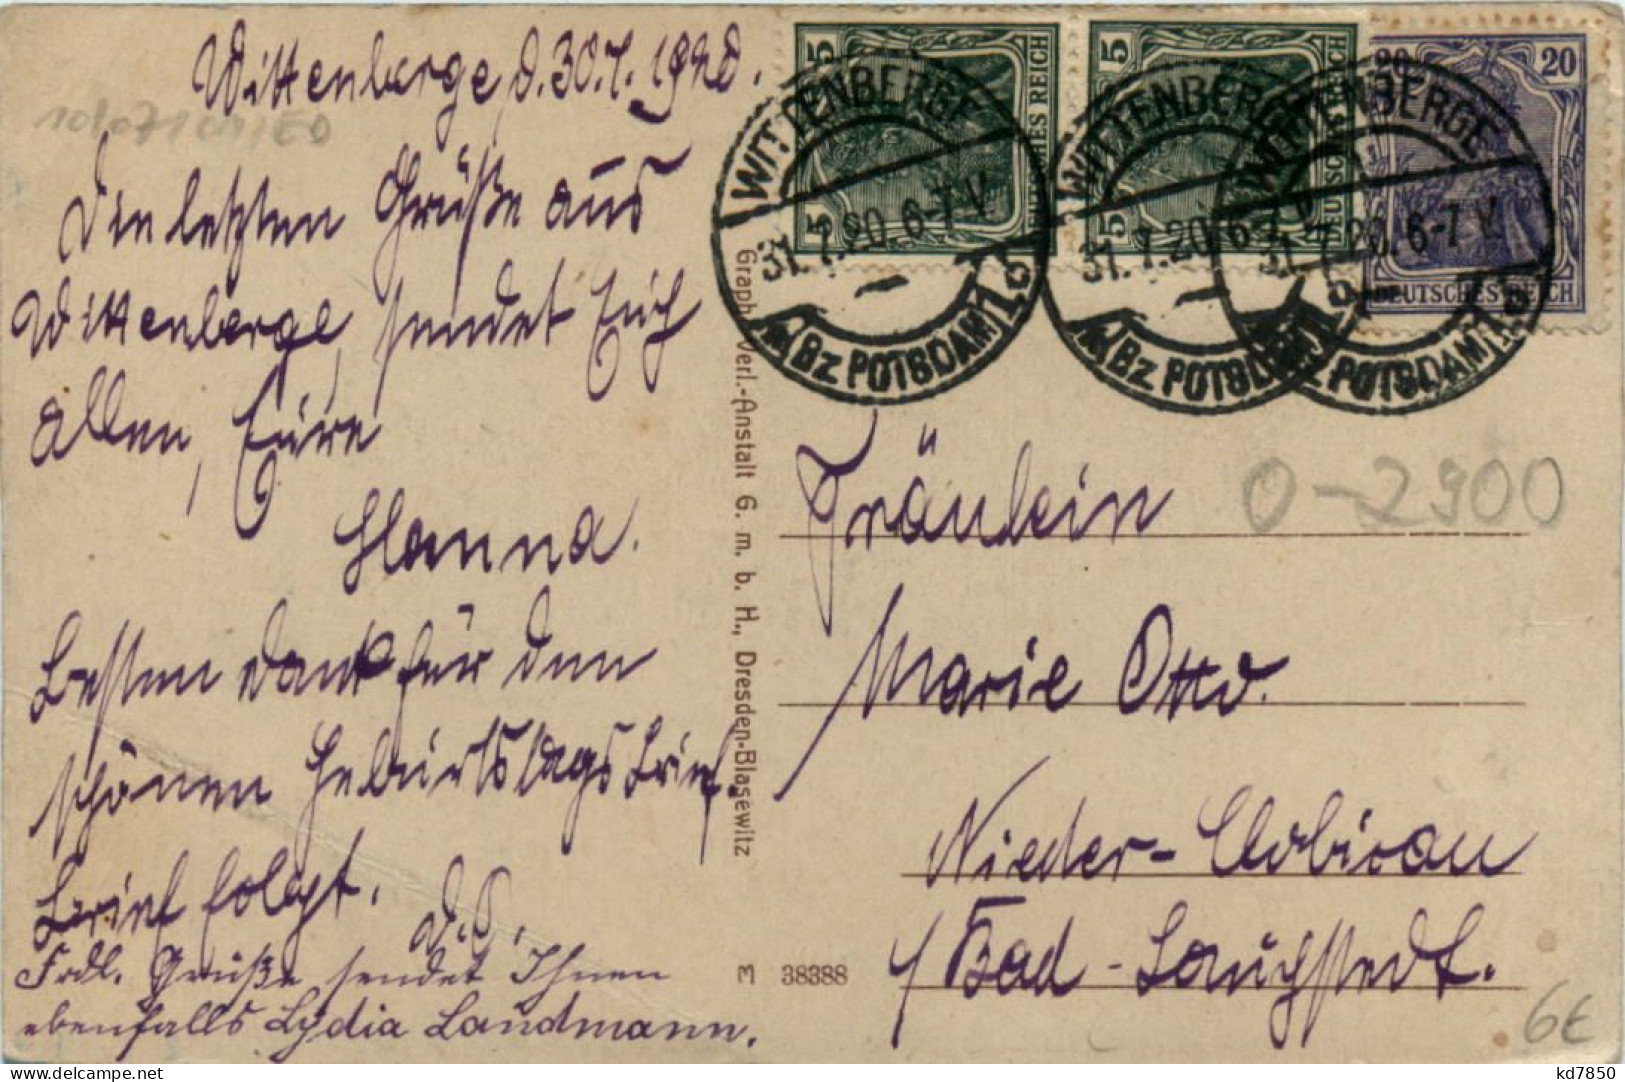 Wittenberge, d. 30.7. 1920.
Die letzten Grüße aus
Wittenberge, sendet Euch
allen, Eure
Hanna.
Besten Dank für den
schönen Geburtstagsbrief.
Brief folgt.
D.O.
Frdl. Grüße sendet Ihnen
ebenfalls Lydia Landmann.
Graph. Verl.-Anstalt G. m. b. H., Dresden-Blasewitz
M 38388
5 5 DEUTSCHES REICH
5 5 DEUTSCHES REICH
20 20 DEUTSCHES REICH
WITTENBERGE
31.7.20. 6-7 V.
(Bz POTSDAM) 1 b
WITTENBERGE
31.7.20. 6-7 V.
(Bz POTSDAM) 1 b
WITTENBERGE
31.7.20. 6-7 V.
(Bz POTSDAM) 1 b
Fräulein
O-2900
Marie Otto.
Nieder-Clobicau
b/ Bad-Lauchstedt.
6€
kd7850
www.delcampe.net